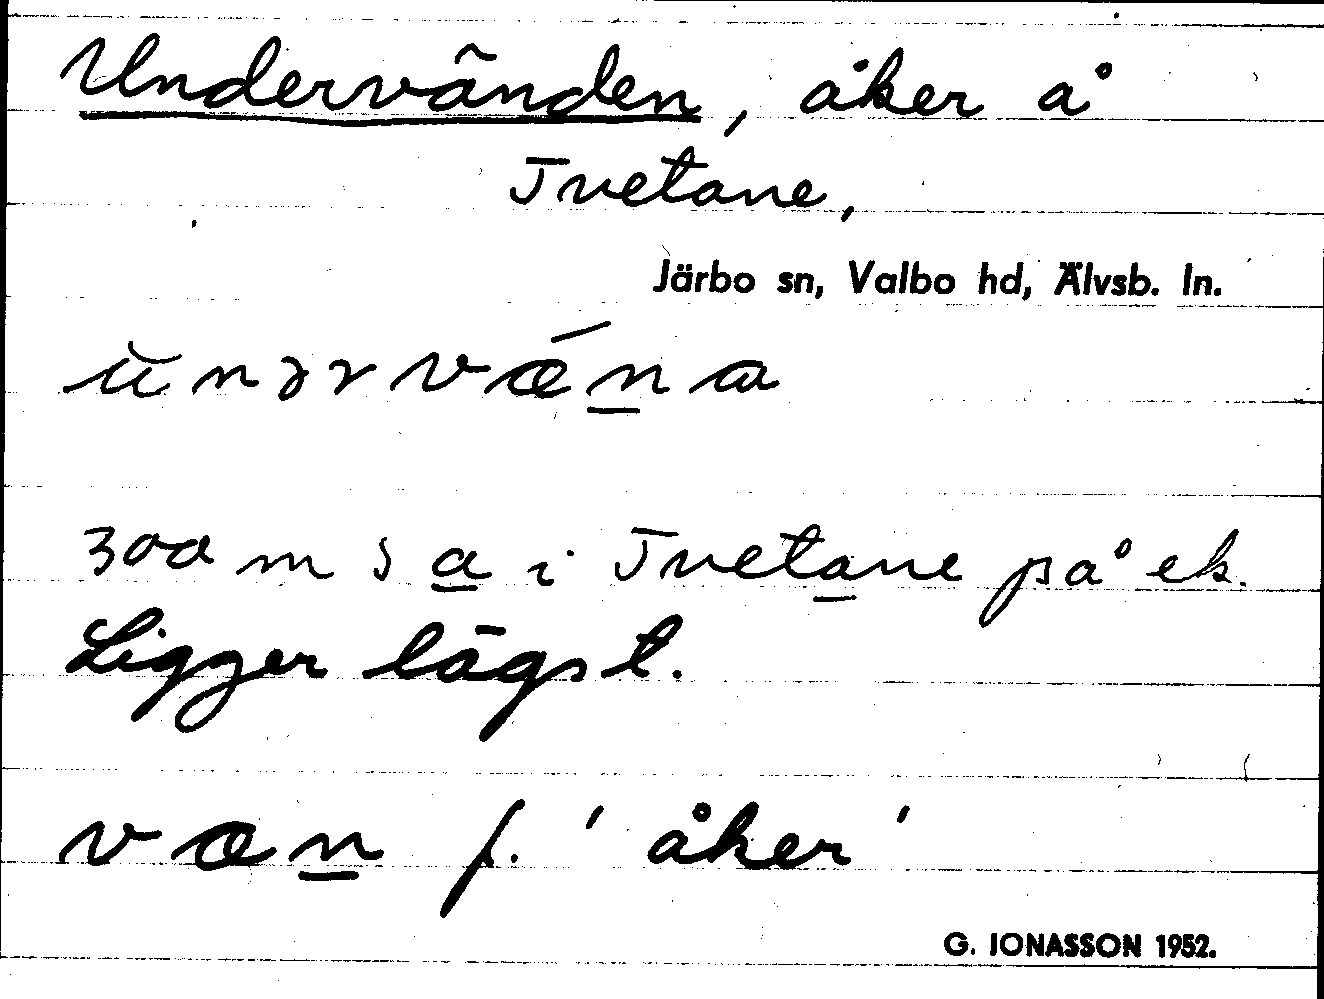 Undervänden, åker å
Tvetane,
Järbo sn, Valbo hd, Älvsb. ln.
ŭnərvǽna
300 m S a i Tvetane på ek.
Ligger lägst.
væn f. ' åker '
G. JONASSON 1952.